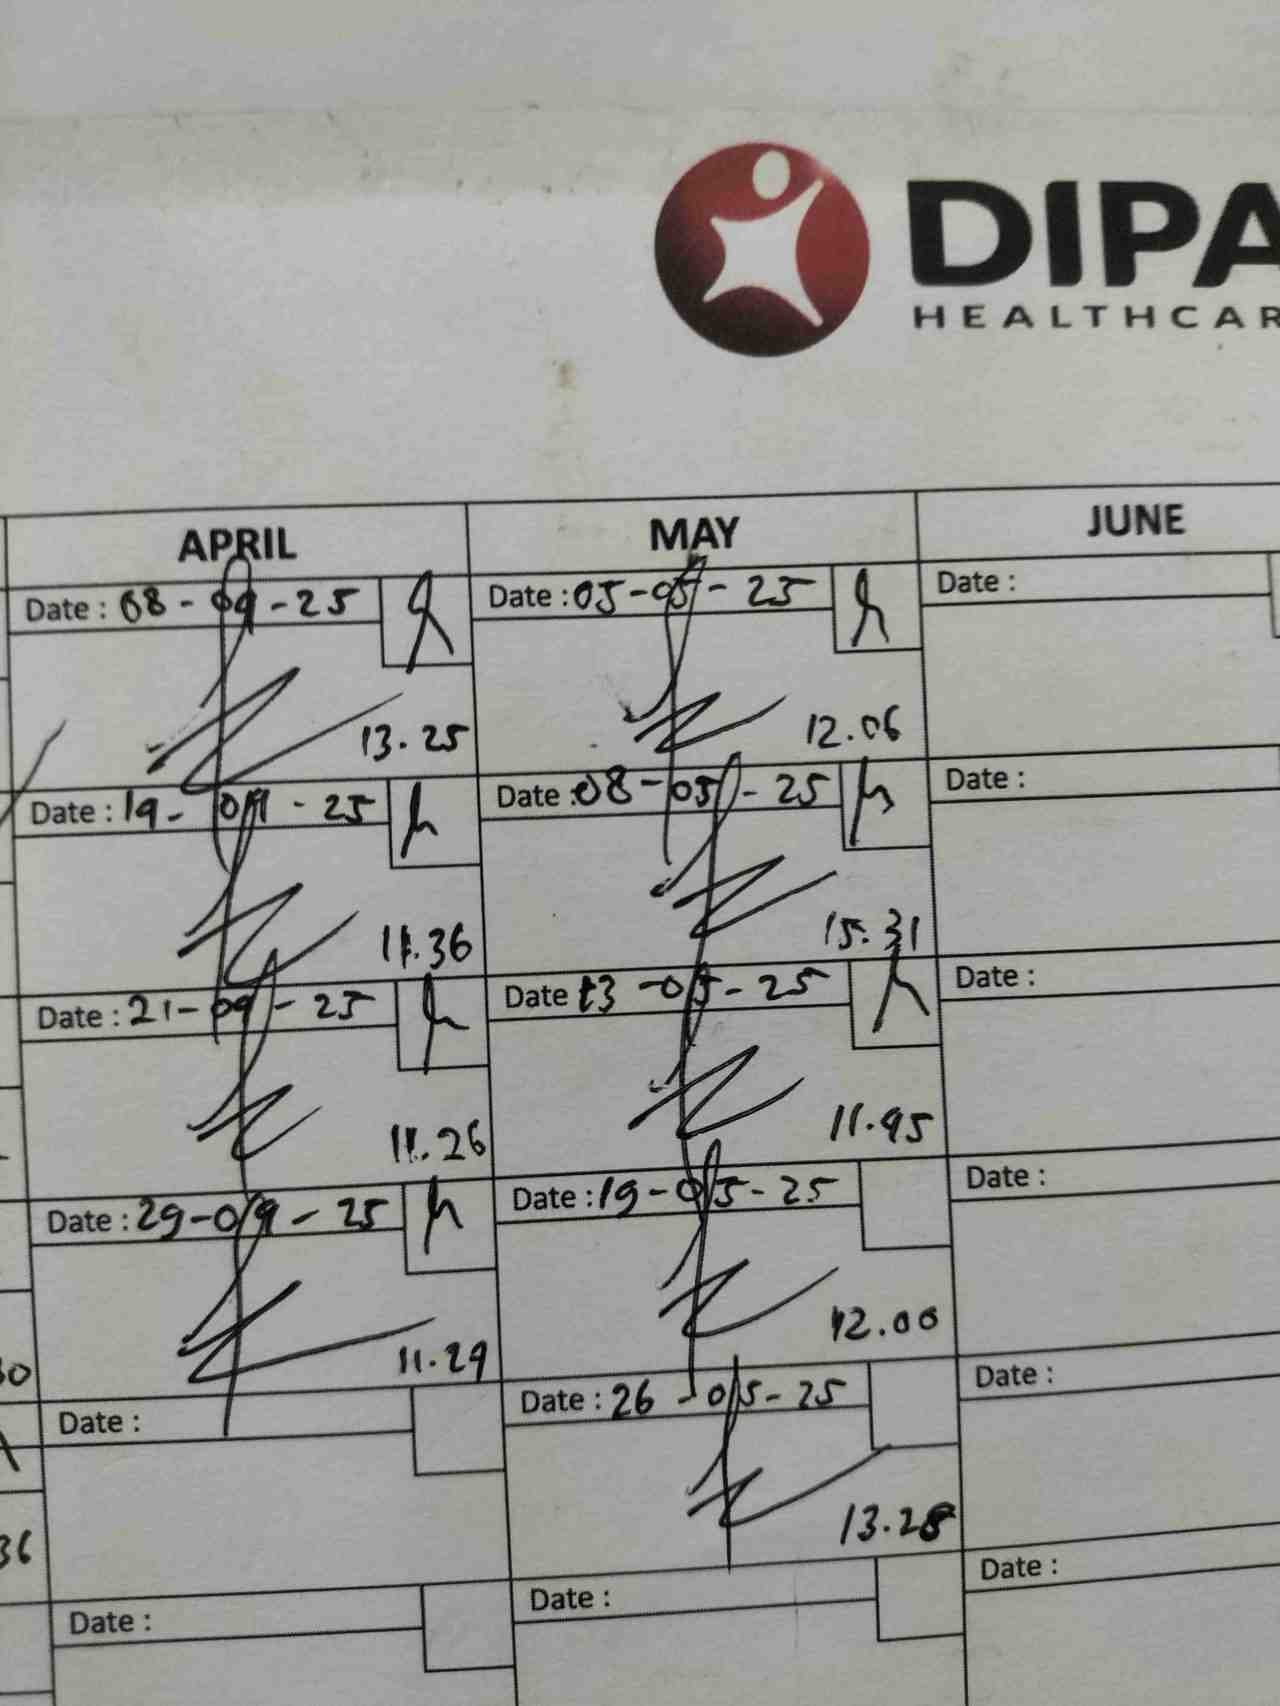 DIPA
HEALTHCAR
APRIL MAY JUNE
Date : 08-04-25 Date : 05-05-25 Date :
13.25 12.06
Date : 19-04-25 Date : 08-05-25 Date :
11.36 15.31
Date : 21-04-25 Date : 13-05-25 Date :
11.26 11.45
Date : 29-04-25 Date : 19-05-25 Date :
11.29 12.00
30
Date : Date : 26-05-25 Date :
13.28
36
Date : Date : Date :